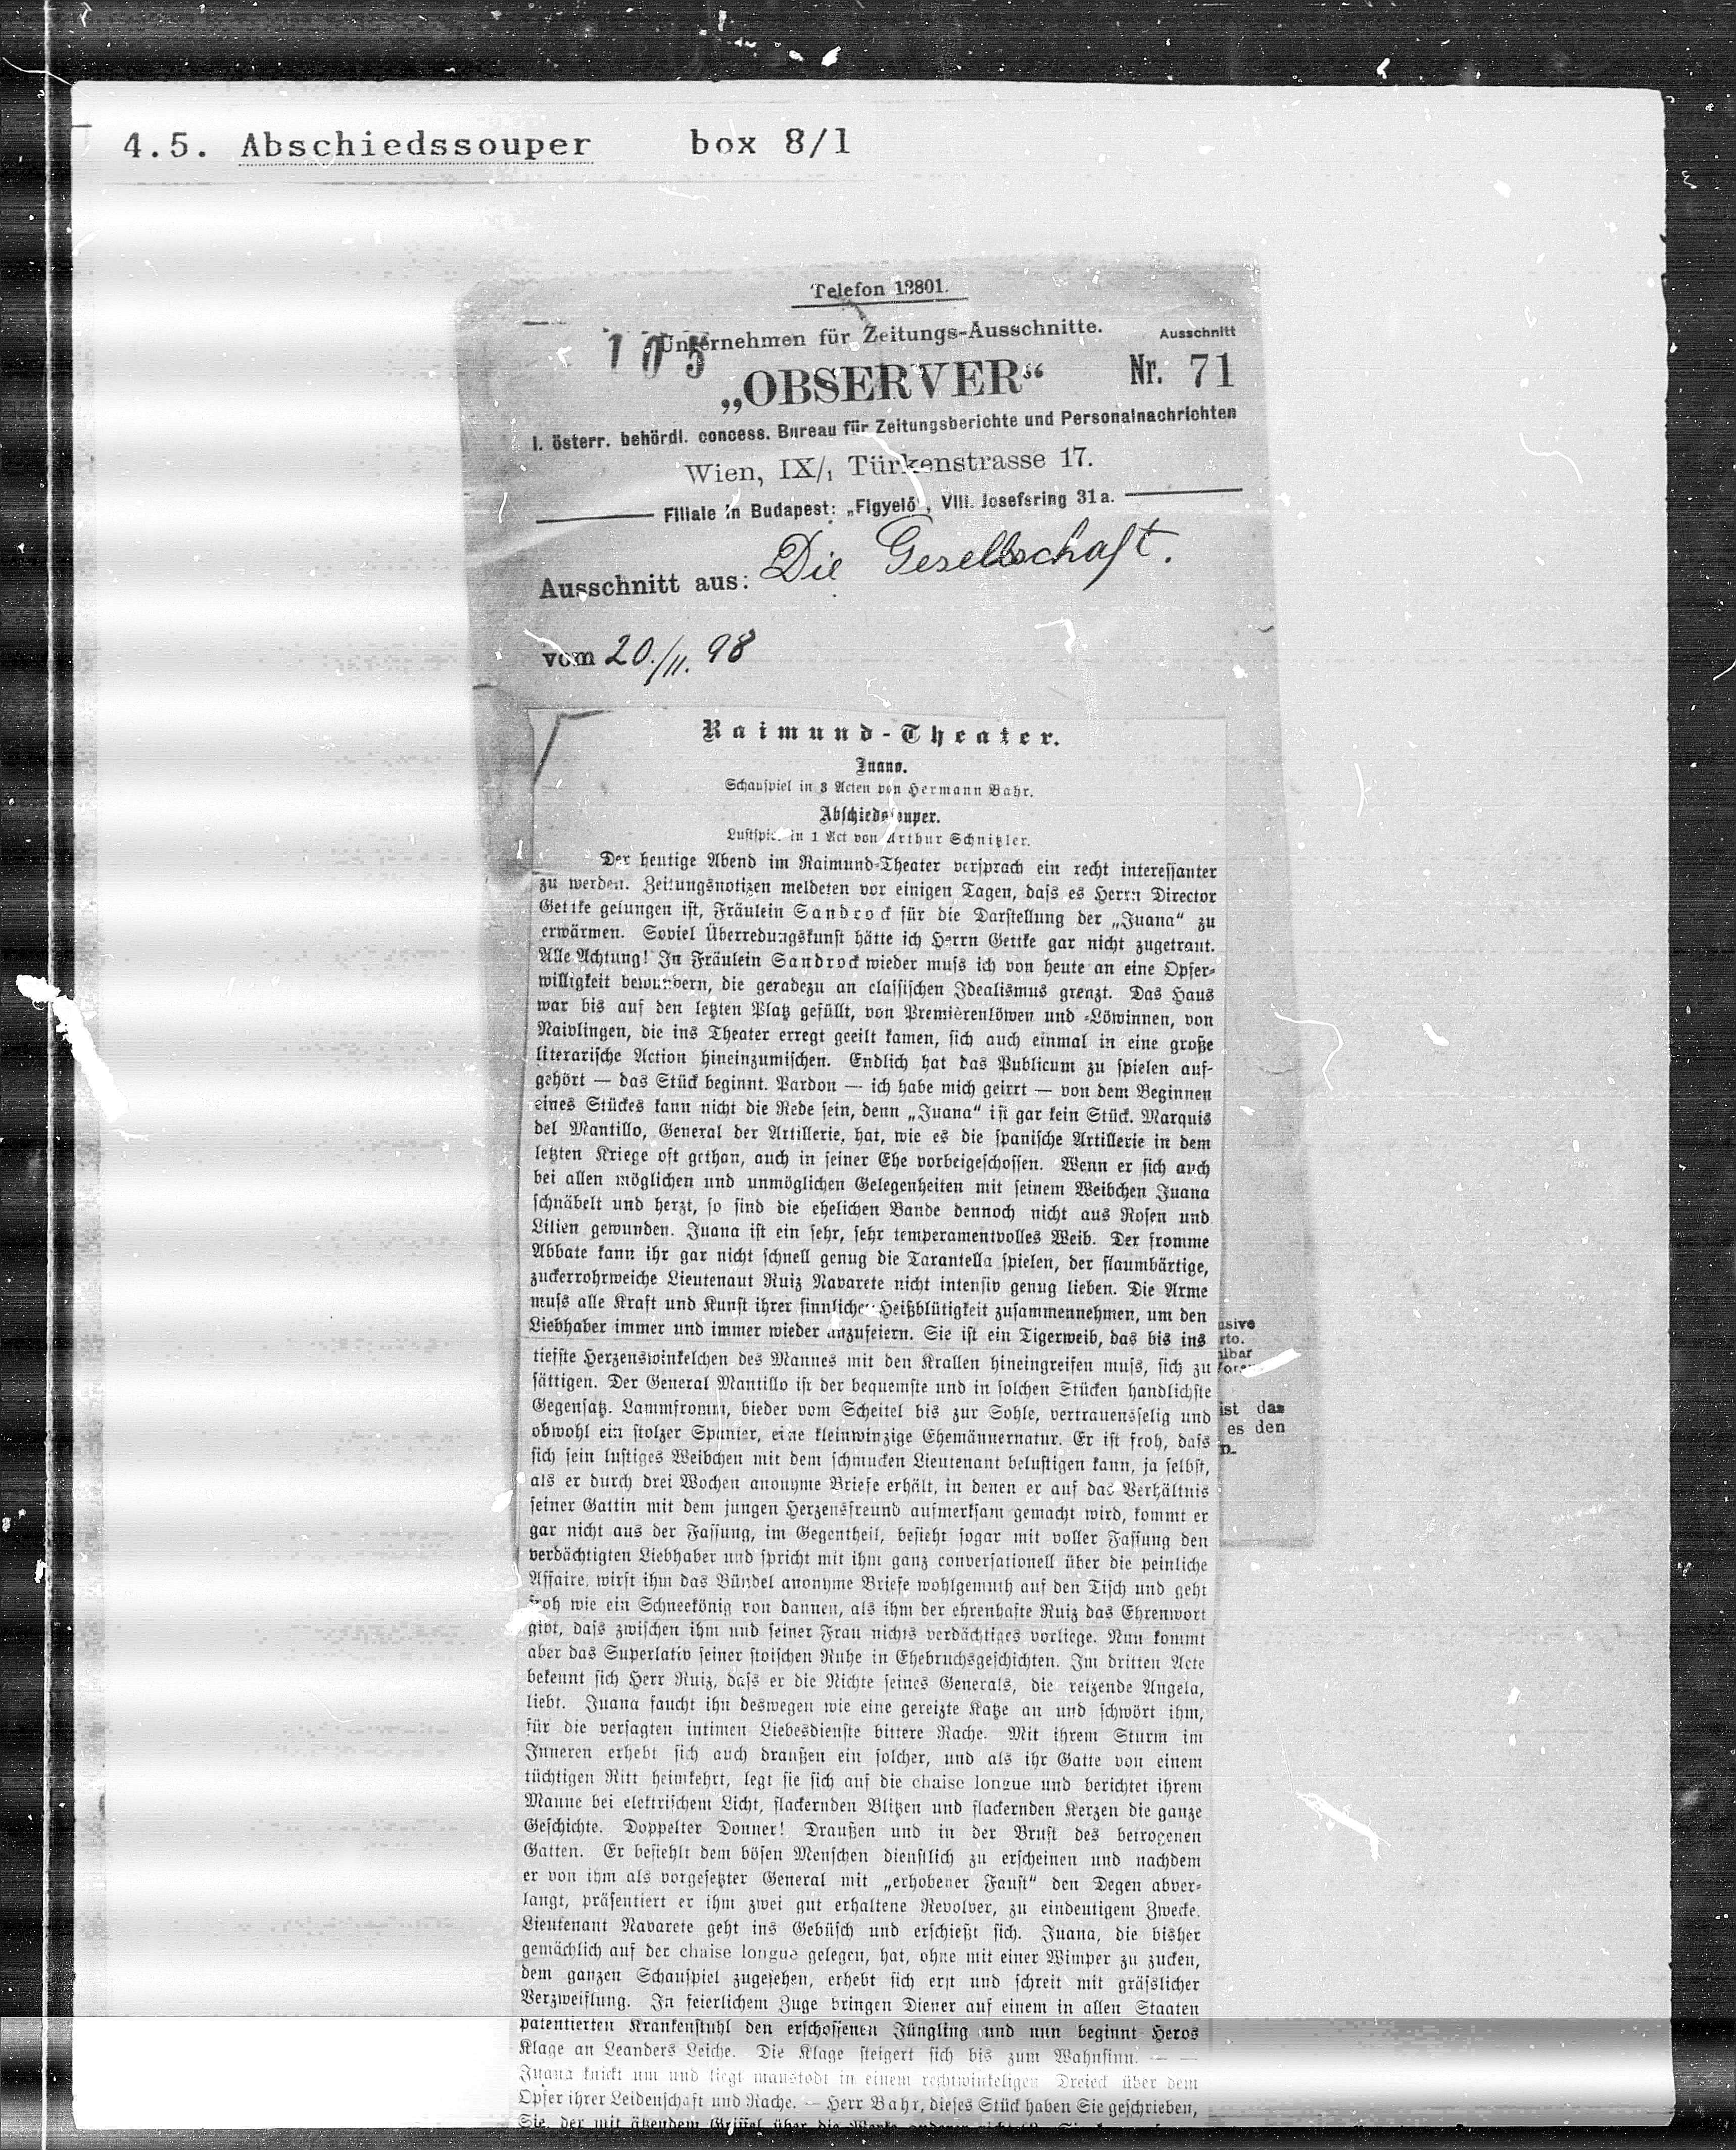 4.5. Abschiedssouper box 8/1
Telefon 12801.
105
Unternehmen für Zeitungs-Ausschnitte.
Ausschnitt
„OBSERVER“
Nr. 71
I. österr. behördl. concess. Bureau für Zeitungsberichte und Personalnachrichten
Wien, IX/1 Türkenstrasse 17.
Filiale in Budapest: „Figyelő“, VIII. Josefsring 31a.
Ausschnitt aus: Die Gesellschaft.
vom 20./11. 98
Raimund-Theater.
Juana.
Schauspiel in 3 Acten von Hermann Bahr.
Abschiedssouper.
Lustspiel in 1 Act von Arthur Schnitzler.
Der heutige Abend im Raimund-Theater versprach ein recht interessanter
zu werden. Zeitungsnotizen meldeten vor einigen Tagen, dass es Herrn Director
Gettke gelungen ist, Fräulein Sandrock für die Darstellung der „Juana“ zu
erwärmen. Soviel Überredungskunst hätte ich Herrn Gettke gar nicht zugetraut.
Alle Achtung! In Fräulein Sandrock wieder muss ich von heute an eine Opfer-
willigkeit bewundern, die geradezu an classischen Idealismus grenzt. Das Haus
war bis auf den letzten Platz gefüllt, von Premièrenlöwen und -Löwinnen, von
Naivlingen, die ins Theater erregt geeilt kamen, sich auch einmal in eine große
literarische Action hineinzumischen. Endlich hat das Publicum zu spielen auf-
gehört — das Stück beginnt. Pardon — ich habe mich geirrt — von dem Beginnen
eines Stückes kann nicht die Rede sein, denn „Juana“ ist gar kein Stück. Marquis
del Mantillo, General der Artillerie, hat, wie es die spanische Artillerie in dem
letzten Kriege oft gethan, auch in seiner Ehe vorbeigeschossen. Wenn er sich auch
bei allen möglichen und unmöglichen Gelegenheiten mit seinem Weibchen Juana
schnäbelt und herzt, so sind die ehelichen Bande dennoch nicht aus Rosen und
Lilien gewunden. Juana ist ein sehr, sehr temperamentvolles Weib. Der fromme
Abbate kann ihr gar nicht schnell genug die Tarantella spielen, der flaumbärtige,
zuckerrohrweiche Lieutenaut Ruiz Navarete nicht intensiv genug lieben. Die Arme
muss alle Kraft und Kunst ihrer sinnlichen Heißblütigkeit zusammennehmen, um den
Liebhaber immer und immer wieder anzufeiern. Sie ist ein Tigerweib, das bis ins
tiefste Herzenswinkelchen des Mannes mit den Krallen hineingreifen muss, sich zu
sättigen. Der General Mantillo ist der bequemste und in solchen Stücken handlichste
Gegensatz. Lammfromm, bieder vom Scheitel bis zur Sohle, vertrauensselig und
obwohl ein stolzer Spanier, eine kleinwinzige Ehemännernatur. Er ist froh, dass
sich sein lustiges Weibchen mit dem schmucken Lieutenant belustigen kann, ja selbst,
als er durch drei Wochen anonyme Briefe erhält, in denen er auf das Verhältnis
seiner Gattin mit dem jungen Herzensfreund aufmerksam gemacht wird, kommt er
gar nicht aus der Fassung, im Gegentheil, besieht sogar mit voller Fassung den
verdächtigten Liebhaber und spricht mit ihm ganz conversationell über die peinliche
Affaire, wirft ihm das Bündel anonyme Briefe wohlgemuth auf den Tisch und geht
froh wie ein Schneekönig von dannen, als ihm der ehrenhafte Ruiz das Ehrenwort
gibt, dass zwischen ihm und seiner Frau nichts verdächtiges vorliege. Nun kommt
aber das Superlativ seiner stoischen Ruhe in Ehebruchsgeschichten. Im dritten Acte
bekennt sich Herr Ruiz, dass er die Nichte seines Generals, die reizende Angela,
liebt. Juana faucht ihn deswegen wie eine gereizte Katze an und schwört ihm,
für die versagten intimen Liebesdienste bittere Rache. Mit ihrem Sturm im
Inneren erhebt sich auch draußen ein solcher, und als ihr Gatte von einem
tüchtigen Ritt heimkehrt, legt sie sich auf die chaise longue und berichtet ihrem
Manne bei elektrischem Licht, flackernden Blitzen und flackernden Kerzen die ganze
Geschichte. Doppelter Donner! Draußen und in der Brust des betrogenen
Gatten. Er befiehlt dem bösen Menschen dienstlich zu erscheinen und nachdem
er von ihm als vorgesetzter General mit „erhobener Faust“ den Degen abver-
langt, präsentiert er ihm zwei gut erhaltene Revolver, zu eindeutigem Zwecke.
Lieutenant Navarete geht ins Gebüsch und erschießt sich. Juana, die bisher
gemächlich auf der chaise longue gelegen, hat, ohne mit einer Wimper zu zucken,
dem ganzen Schauspiel zugesehen, erhebt sich erst und schreit mit grässlicher
Verzweiflung. In feierlichem Zuge bringen Diener auf einem in allen Staaten
patentierten Krankenstuhl den erschossenen Jüngling und nun beginnt Heros
Klage an Leanders Leiche. Die Klage steigert sich bis zum Wahnsinn. — —
Juana knickt um und liegt maustodt in einem rechtwinkeligen Dreieck über dem
Opfer ihrer Leidenschaft und Rache. — Herr Bahr, dieses Stück haben Sie geschrieben,
Sie, der mit ätzendem Griffel über die Werke anderer
usive
rto.
lbar
ist das
es den